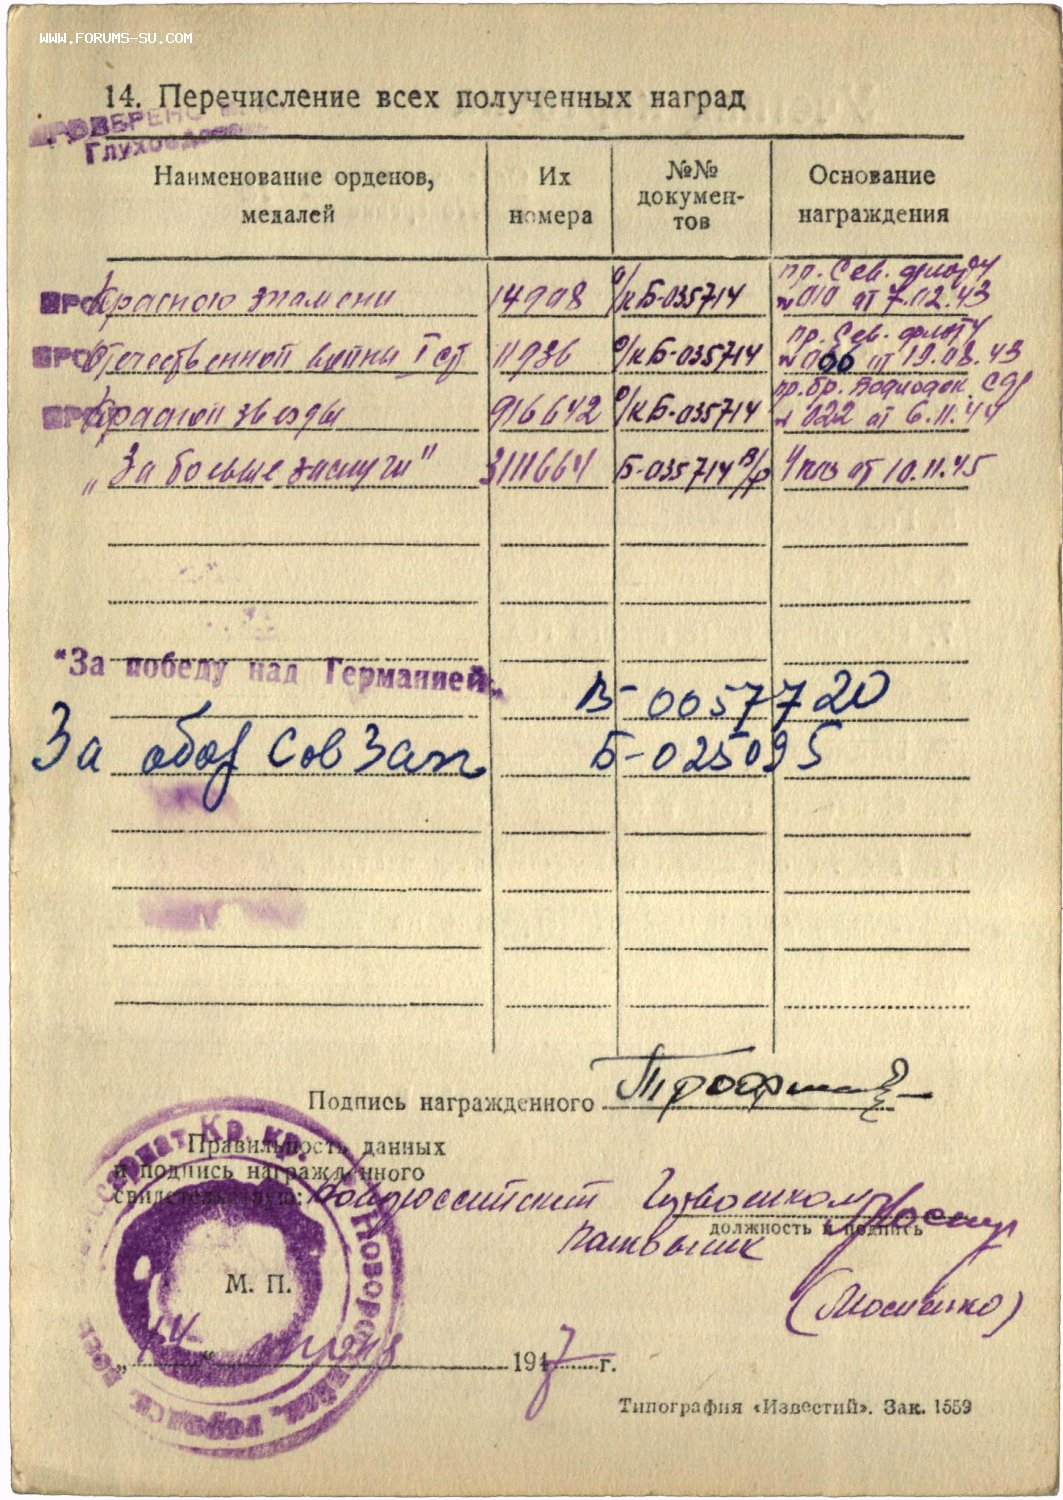 WWW.FORUMS-SU.COM
14. Перечисление всех полученных наград
ПРОВЕРЕНО
Наименование орденов, медалей
Их номера
№№ документов
Основание награждения
Красного знамени 14908 о/к Б-035714 пр. Сев. флоту № 010 от 7.02.43
Отечественной войны I ст 11936 о/к Б-035714 пр. Сев. флоту от 19.08.43
Красной звезды 916642 о/к Б-035714 пр. бр. Подлодок № 022 от 6.11.44
„За боевые заслуги" 3111664 Б-035714 Указ от 10.11.45
"За победу над Германией„ В-0057720
За обор Сов Зап Б-025095
Подпись награжденного
Правильность данных
и подпись награжденного
свидетельствую: Новороссийский Горвоенком
должность и подпись
Полковник
М. П.
„14“ апреля 1947 г.
Типография «Известий». Зак. 1559